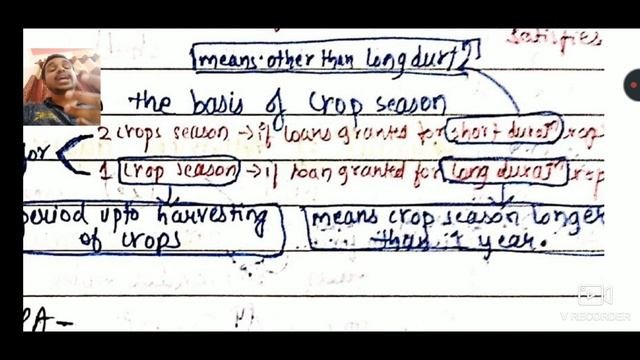 satisfies
means other than long durⁿ
the basis of crop season
2 crops season → if loans granted for short duratⁿ crop
for
1 crop season → if loan granted for long duratⁿ crop
period upto harvesting
of crops
means crop season longer
than 1 year.
PA -
V RECORDER